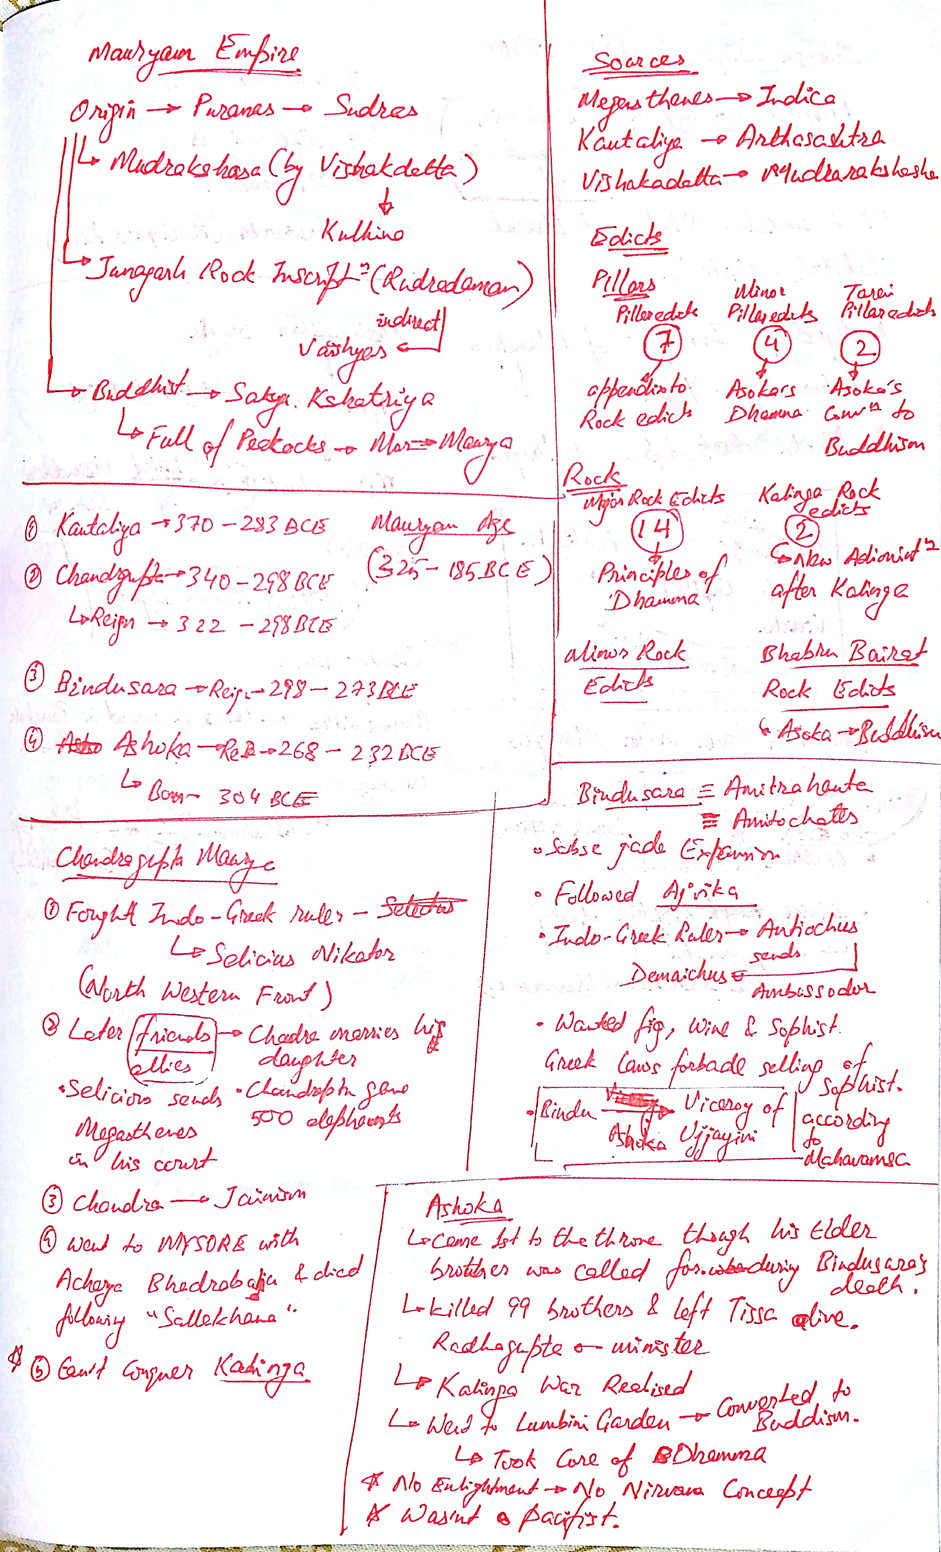 Mauryan Empire
Origin → Puranas → Sudras
↳ Mudrakshasa (by Vishakdatta)
↓
Kulhina
↳ Junagarh Rock Inscriptⁿ (Rudradaman)
indirect
Vaishyas ←
↳ Buddhist → Sakya Kshatriya
↳ Full of Peacocks → Mor → Maurya
① Kautaliya → 370 - 283 BCE
Mauryan Age
(325 - 185 BCE)
② Chandgupta → 340 - 298 BCE
↳ Reign → 322 - 298 BCE
③ Bindusara → Reig. - 298 - 273 BCE
④ Ashoka → Rei → 268 - 232 BCE
↳ Born - 304 BCE
Sources
Megasthenes → Indica
Kautaliya → Arthasashtra
Vishakadatta → Mudrarakshasha
Edicts
Pillars
Pillar edicts
7
appendix to
Rock edicts
Minor
Pillar edicts
4
Asoka's
Dhamma
Tarai
Pillar edicts
2
Asoka's
Convⁿ to
Buddhism
Rock
Major Rock Edicts
14
Principles of
Dhamma
Kalinga Rock
edicts
2
↳ New Adminisⁿ
after Kalinga
Minor Rock
Edicts
Bhabru Bairat
Rock Edicts
↳ Asoka → Buddhism
Chandragupta Maurya
① Fought Indo-Greek ruler -
↳ Selicius Nikator
(North Western Front)
② Later friends → Chadra marries his
allies daughter
• Selicius sends
Megasthenes
in his court
• Chandrapta gave
500 elephants
③ Chandra → Jainism
④ went to MYSORE with
Acharya Bhadrabahu & died
following "Sallekhana"
* ⑤ Can't Conquer Kalinga
Bindusara ≡ Amitrahanta
≡ Amitochates
• Expansion
• Followed Ajivika
• Indo-Greek Ruler → Antiochus
sends
Demaichus ←
Ambassador
• Wanted fig, Wine & Sophist.
Greek Laws forbade selling of
Sophist.
• Bindu → Viceroy of
Ashoka Ujjayini
according
to
Mahavamsa
Ashoka
↳ Came 1st to the throne though his Elder
brother was called for during Bindusara's
death.
↳ Killed 99 brothers & left Tissa alive.
Radhagupta ← minister
↳ Kalinga War Realised
↳ Went to Lumbini Garden → Converted to
Buddism.
↳ Took Care of Dhamma
* No Enlightment → No Nirvana Concept
* Wasn't a pacifist.